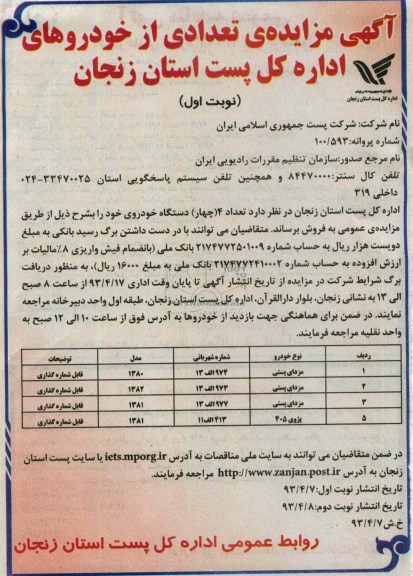 آگهی مزایده‌ی تعدادی از خودروهای
اداره کل پست استان زنجان
اداره کل پست استان زنجان
(نوبت اول)
نام شرکت: شرکت پست جمهوری اسلامی ایران
شماره پروانه: ۱۰۰/۵۹۳
نام مرجع صدور:سازمان تنظیم مقررات رادیویی ایران
تلفن کال سنتر:۸۴۴۷۰۰۰۰ و همچنین تلفن سیستم پاسخگویی استان ۳۳۴۷۰۰۲۵-۰۲۴
داخلی ۳۱۹
اداره کل پست استان زنجان در نظر دارد تعداد ۴(چهار) دستگاه خودروی خود را بشرح ذیل از طریق
مزایده‌ی عمومی به فروش برساند. متقاضیان می توانند با در دست داشتن برگ رسید بانکی به مبلغ
دویست هزار ریال به حساب شماره ۲۱۷۴۷۷۲۵۰۱۰۰۹ بانک ملی (بانضمام فیش واریزی ۸٪مالیات بر
ارزش افزوده به حساب شماره ۲۱۷۴۷۷۲۴۱۰۰۰۲ بانک ملی به مبلغ ۱۶۰۰۰ ریال)، به منظور دریافت
برگ شرایط شرکت در مزایده از تاریخ انتشار آگهی تا پایان وقت اداری ۹۳/۴/۱۷ از ساعت ۸ صبح
الی ۱۳ به نشانی زنجان، بلوار دارالقرآن، اداره کل پست استان زنجان، طبقه اول واحد دبیرخانه مراجعه
نمایند. در ضمن برای هماهنگی جهت بازدید از خودروها به آدرس فوق از ساعت ۱۰ الی ۱۲ صبح به
واحد نقلیه مراجعه فرمایند.
ردیف نوع خودرو شماره شهربانی مدل توضیحات
۱ مزدای پستی ۹۷۴الف ۱۳ ۱۳۸۰ قابل شماره گذاری
۲ مزدای پستی ۹۷۳الف ۱۳ ۱۳۸۲ قابل شماره گذاری
۳ مزدای پستی ۹۷۷الف ۱۳ ۱۳۸۱ قابل شماره گذاری
۵ پژوی ۴۰۵ ۴۱۳الف۱۱ ۱۳۸۱ قابل شماره گذاری
در ضمن متقاضیان می توانند به سایت ملی مناقصات به آدرس iets.mporg.ir یا سایت پست استان
زنجان به آدرس http://www.zanjan.post.ir مراجعه فرمایند.
تاریخ انتشار نوبت اول:۹۳/۴/۷
تاریخ انتشار نوبت دوم:۹۳/۴/۸
خ.ش:۹۳/۴/۷
روابط عمومی اداره کل پست استان زنجان